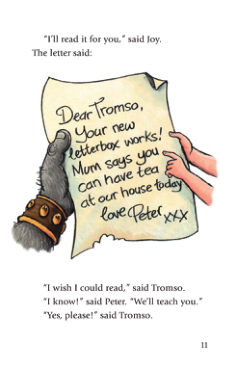 "I'll read it for you," said Joy.
The letter said:
Dear Tromso,
Your new
letterbox works!
Mum says you
can have tea
at our house today
love Peter xxx
"I wish I could read," said Tromso.
"I know!" said Peter. "We'll teach you."
"Yes, please!" said Tromso.
11